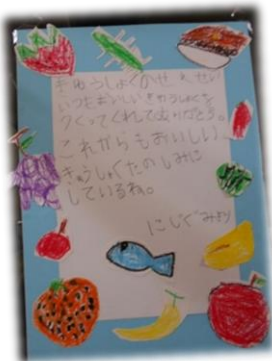 きゅうしょくのせんせい
いつもおいしいきゅうしょくを
つくってくれてありがとう。
これからもおいしい
きゅうしょくたのしみに
しているね。
にじぐみより